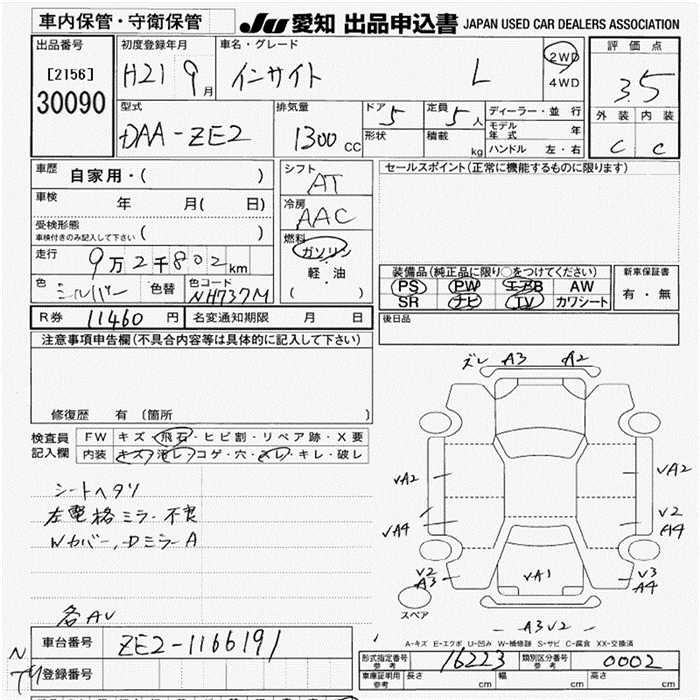 車内保管・守衛保管
JU 愛知 出品申込書 JAPAN USED CAR DEALERS ASSOCIATION
出品番号
[2156]
30090
初度登録年月
H21 9月
車名・グレード
インサイト L
2WD
4WD
評価点
3.5
外装 内装
C C
型式
DAA-ZE2
排気量
1300cc
ドア
5
形状
定員
5人
積載
kg
ディーラー・並行
モデル年式 年
ハンドル 左・右
車歴
自家用・( )
車検
年 月( 日)
受検形態
車検付きのみ記入して下さい ( )
走行
9万2千802km
色
シルバー
色替
色コード
NH737M
シフト
AT
冷房
AAC
燃料
ガソリン
軽・油
( )
セールスポイント(正常に機能するものに限ります)
装備品(純正品に限り○をつけてください)
PS PW エアB AW
SR ナビ TV カワシート
新車保証書
有・無
後日品
R券 11460円
名変通知期限 月 日
注意事項申告欄(不具合内容等は具体的に記入して下さい)
修復歴 有 〔箇所 〕
検査員記入欄
FW キズ・飛石・ヒビ割・リペア跡・X要
内装 キズ・汚レ・コゲ・穴・スレ・キレ・破レ
シートヘタリ
左電格ミラー不良
Wカバー、Dミラー A
各AU
ズレ A3 A2
VA2 VA2
VA4
V2
A4
V2
A3
VA1
V3
A4
スペア
A3V2
A-キズ E-エクボ U-凹み W-補修跡 S-サビ C-腐食 XX-交換済
車台番号
ZE2-1166191
登録番号
型式指定番号
参考
16223
類別区分番号
参考
0002
車庫証明用
参考
長さ cm 幅 cm 高さ cm